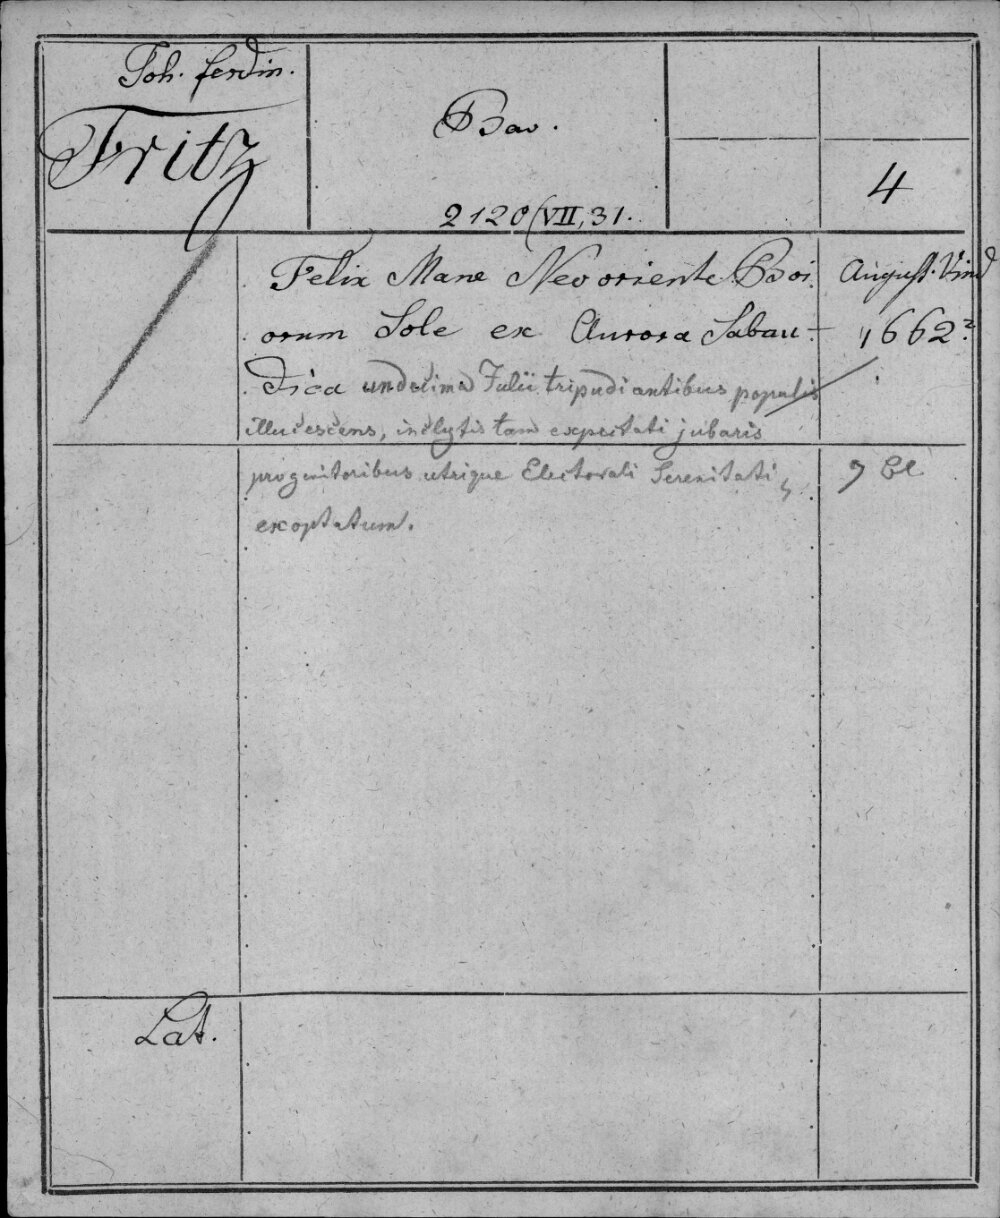 Joh. ferdin.
Fritz
Bav.
2120 (VII, 31.
4
Felix Mane Neo oriente Boi
orum Sole ex Aurora Sabau-
dica undecima Julii tripudiantibus populis
illucescens, inclytis tam expectati jubaris
progenitoribus utrique Electorali Serenitati
exoptatum.
August. Vind
1662?
9 Bl
Lat.